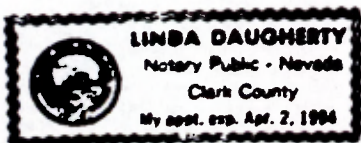 LINDA DAUGHERTY
Notary Public - Nevada
Clark County
My appt. exp. Apr. 2, 1994